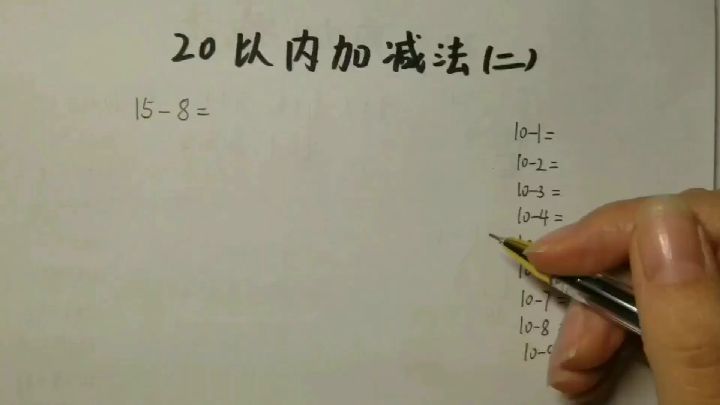 20以内加减法(二)
15-8=
10-1=
10-2=
10-3=
10-4=
10-7=
10-8